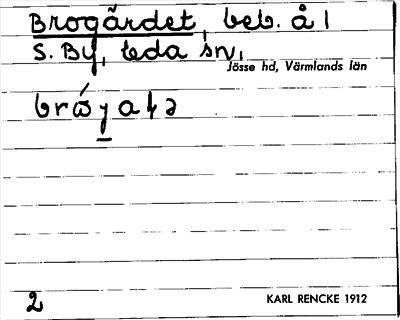 Brogårdet, beb. å 1
S. By, Eda sn,
Jösse hd, Värmlands län
2
KARL RENCKE 1912